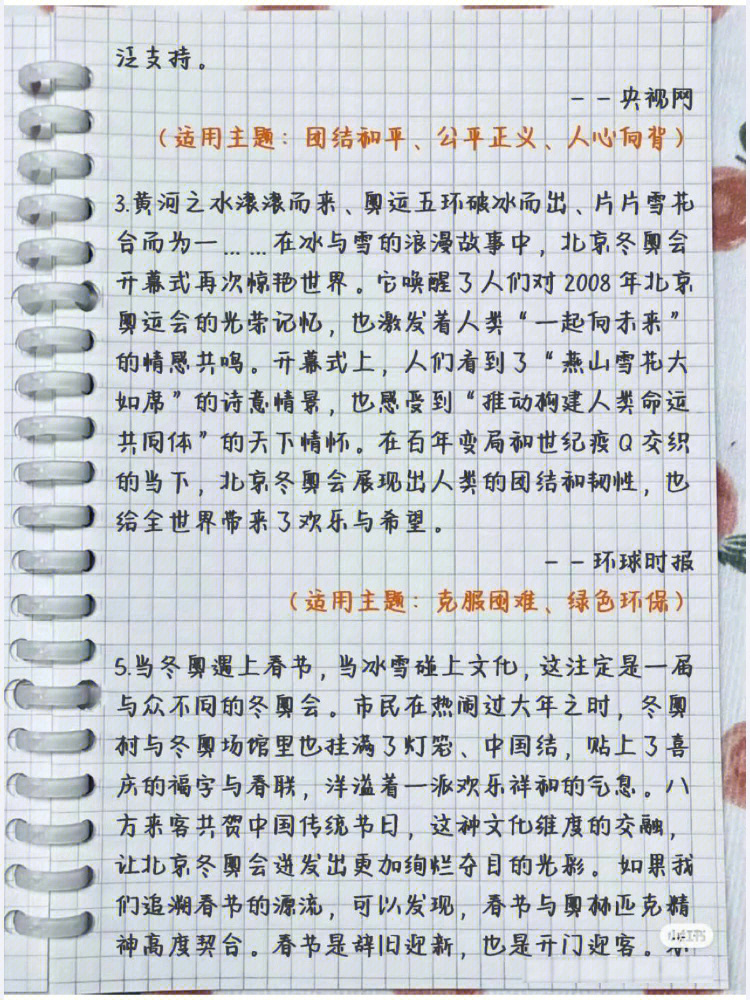 泛支持。
--央视网
(适用主题:团结和平、公平正义、人心向背)
3.黄河之水滚滚而来、奥运五环破冰而出、片片雪花
合而为一……在冰与雪的浪漫故事中,北京冬奥会
开幕式再次惊艳世界。它唤醒了人们对2008年北京
奥运会的光荣记忆,也激发着人类“一起向未来”
的情感共鸣。开幕式上,人们看到了“燕山雪花大
如席”的诗意情景,也感受到“推动构建人类命运
共同体”的天下情怀。在百年变局和世纪疫Q交织
的当下,北京冬奥会展现出人类的团结和韧性,也
给全世界带来了欢乐与希望。
--环球时报
(适用主题:克服困难、绿色环保)
5.当冬奥遇上春节,当冰雪碰上文化,这注定是一届
与众不同的冬奥会。市民在热闹过大年之时,冬奥
村与冬奥场馆里也挂满了灯笼、中国结,贴上了喜
庆的福字与春联,洋溢着一派欢乐祥和的气息。八
方来客共贺中国传统节日,这种文化维度的交融,
让北京冬奥会迸发出更加绚烂夺目的光彩。如果我
们追溯春节的源流,可以发现,春节与奥林匹克精
神高度契合。春节是辞旧迎新,也是开门迎客。
小红书